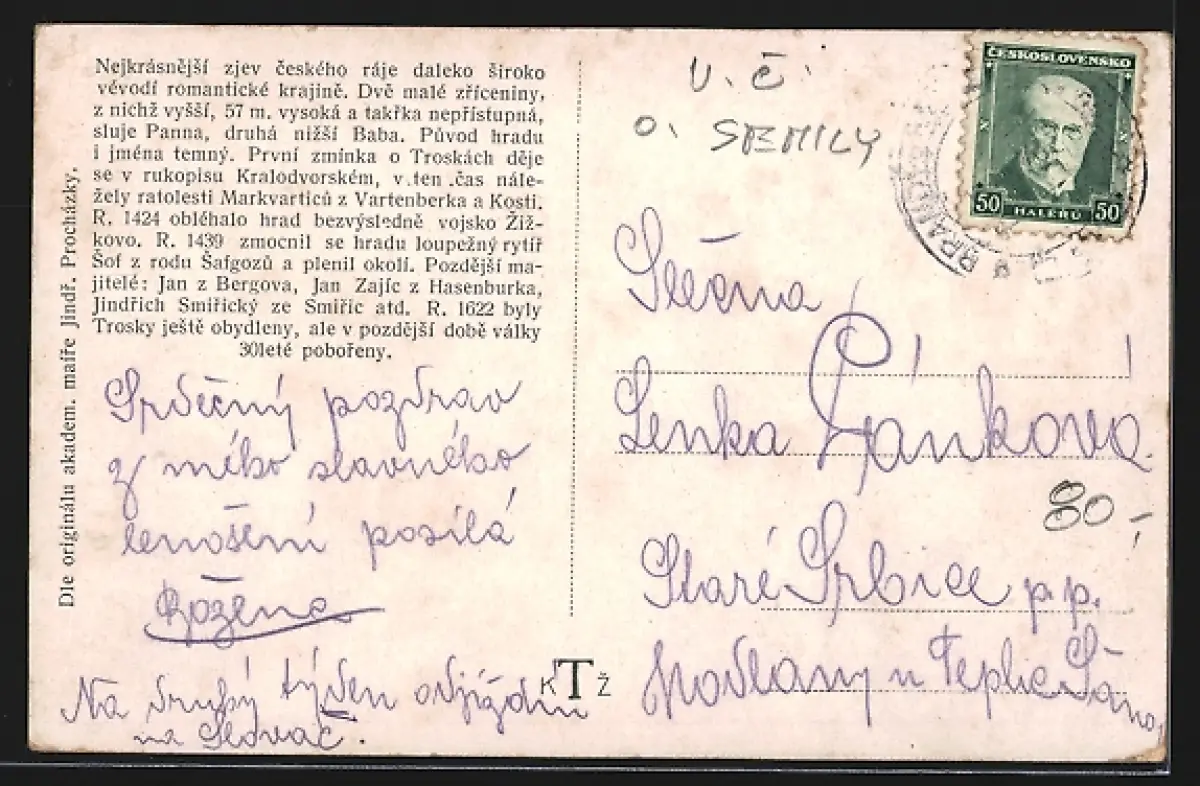 Nejkrásnější zjev českého ráje daleko široko
vévodí romantické krajině. Dvě malé zříceniny,
z nichž vyšší, 57 m. vysoká a takřka nepřístupná,
sluje Panna, druhá nižší Baba. Původ hradu
i jména temný. První zmínka o Troskách děje
se v rukopisu Kralodvorském, v.ten .čas nále-
žely ratolesti Markvarticů z Vartenberka a Kosti.
R. 1424 obléhalo hrad bezvýsledně vojsko Žiž-
kovo. R. 1439 zmocnil se hradu loupežný rytíř
Šof z rodu Šafgozů a plenil okolí. Pozdější ma-
jitelé: Jan z Bergova, Jan Zajíc z Hasenburka,
Jindřich Smiřický ze Smiřic atd. R. 1622 byly
Trosky ještě obydleny, ale v pozdější době války
30leté pobořeny.
Dle originálu akadem. malíře Jindř. Procházky.
Srdečný pozdrav
z mého slavného
lenošení posílá
Božena
Na druhý týden odjíždím
na Slovač.
K T Ž
V. Č.
o. SEMILY
ČESKOSLOVENSKO
50 HALÉŘŮ 50
Slečna
Lenka Pánková
80,-
Staré Srbice p.p.
Modlany u Teplic Šánov